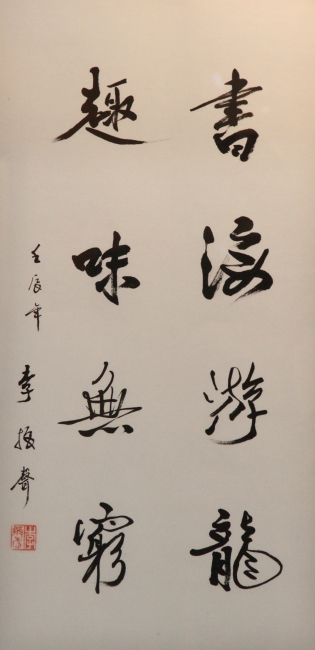 書海游龍
趣味無窮
壬辰年
李振聲